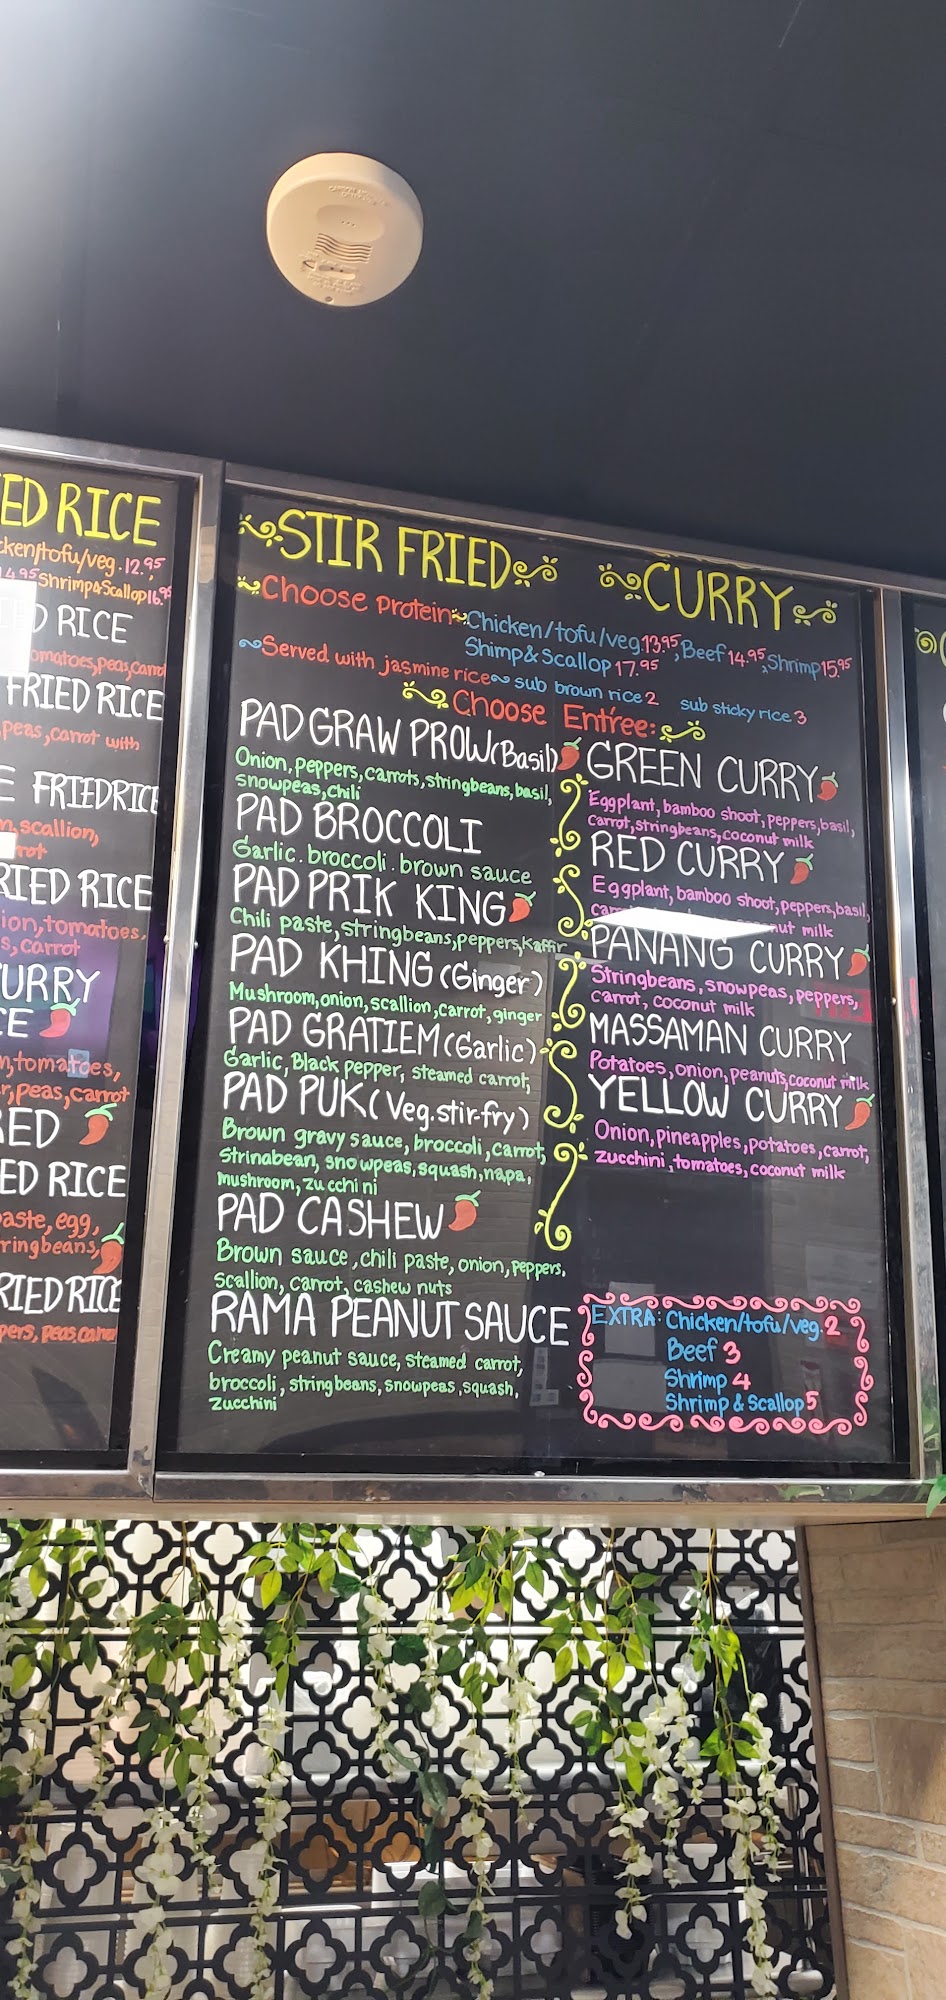 ED RICE
cken/tofu/veg. 12.95
14.95 shrimp&Scallop 16.95
RICE
omatoes, peas, carrot
FRIED RICE
peas, carrot with
E FRIEDRICE
scallion,
RIED RICE
ion, tomatoes,
s, carrot
URRY
CE
tomatoes,
r, peas, carrot
RED
ED RICE
aste, egg,
ringbeans,
RIED RICE
pers, peas, carrot
STIR FRIED
CURRY
Choose Protein
Chicken/tofu/veg. 13.95, Beef 14.95, Shrimp 15.95
Shimp & Scallop 17.95
Served with jasmine rice sub brown rice 2 sub sticky rice 3
Choose Entree:
PAD GRAW PROW (Basil)
Onion, peppers, carrots, stringbeans, basil,
snowpeas, chili
PAD BROCCOLI
Garlic. broccoli. brown sauce
PAD PRIK KING
Chili paste, stringbeans, peppers, Kaffir
PAD KHING (Ginger)
Mushroom, onion, scallion, carrot, ginger
PAD GRATIEM (Garlic)
Garlic, Black pepper, steamed carrot,
PAD PUK (Veg. stir-fry)
Brown gravy sauce, broccoli, carrot,
Strinabean, snowpeas, squash, napa,
mushroom, zucchini
PAD CASHEW
Brown sauce, chili paste, onion, peppers,
scallion, carrot, cashew nuts
RAMA PEANUT SAUCE
Creamy peanut sauce, steamed carrot,
broccoli, stringbeans, snowpeas, squash,
zucchini
GREEN CURRY
Eggplant, bamboo shoot, peppers, basil,
carrot, stringbeans, coconut milk
RED CURRY
Eggplant, bamboo shoot, peppers, basil,
nut milk
PANANG CURRY
Stringbeans, snowpeas, peppers,
carrot, coconut milk
MASSAMAN CURRY
Potatoes, onion, peanuts, coconut milk
YELLOW CURRY
Onion, pineapples, potatoes, carrot,
zucchini, tomatoes, coconut milk
EXTRA: Chicken/tofu/veg. 2
Beef 3
Shrimp 4
Shrimp & Scallop 5